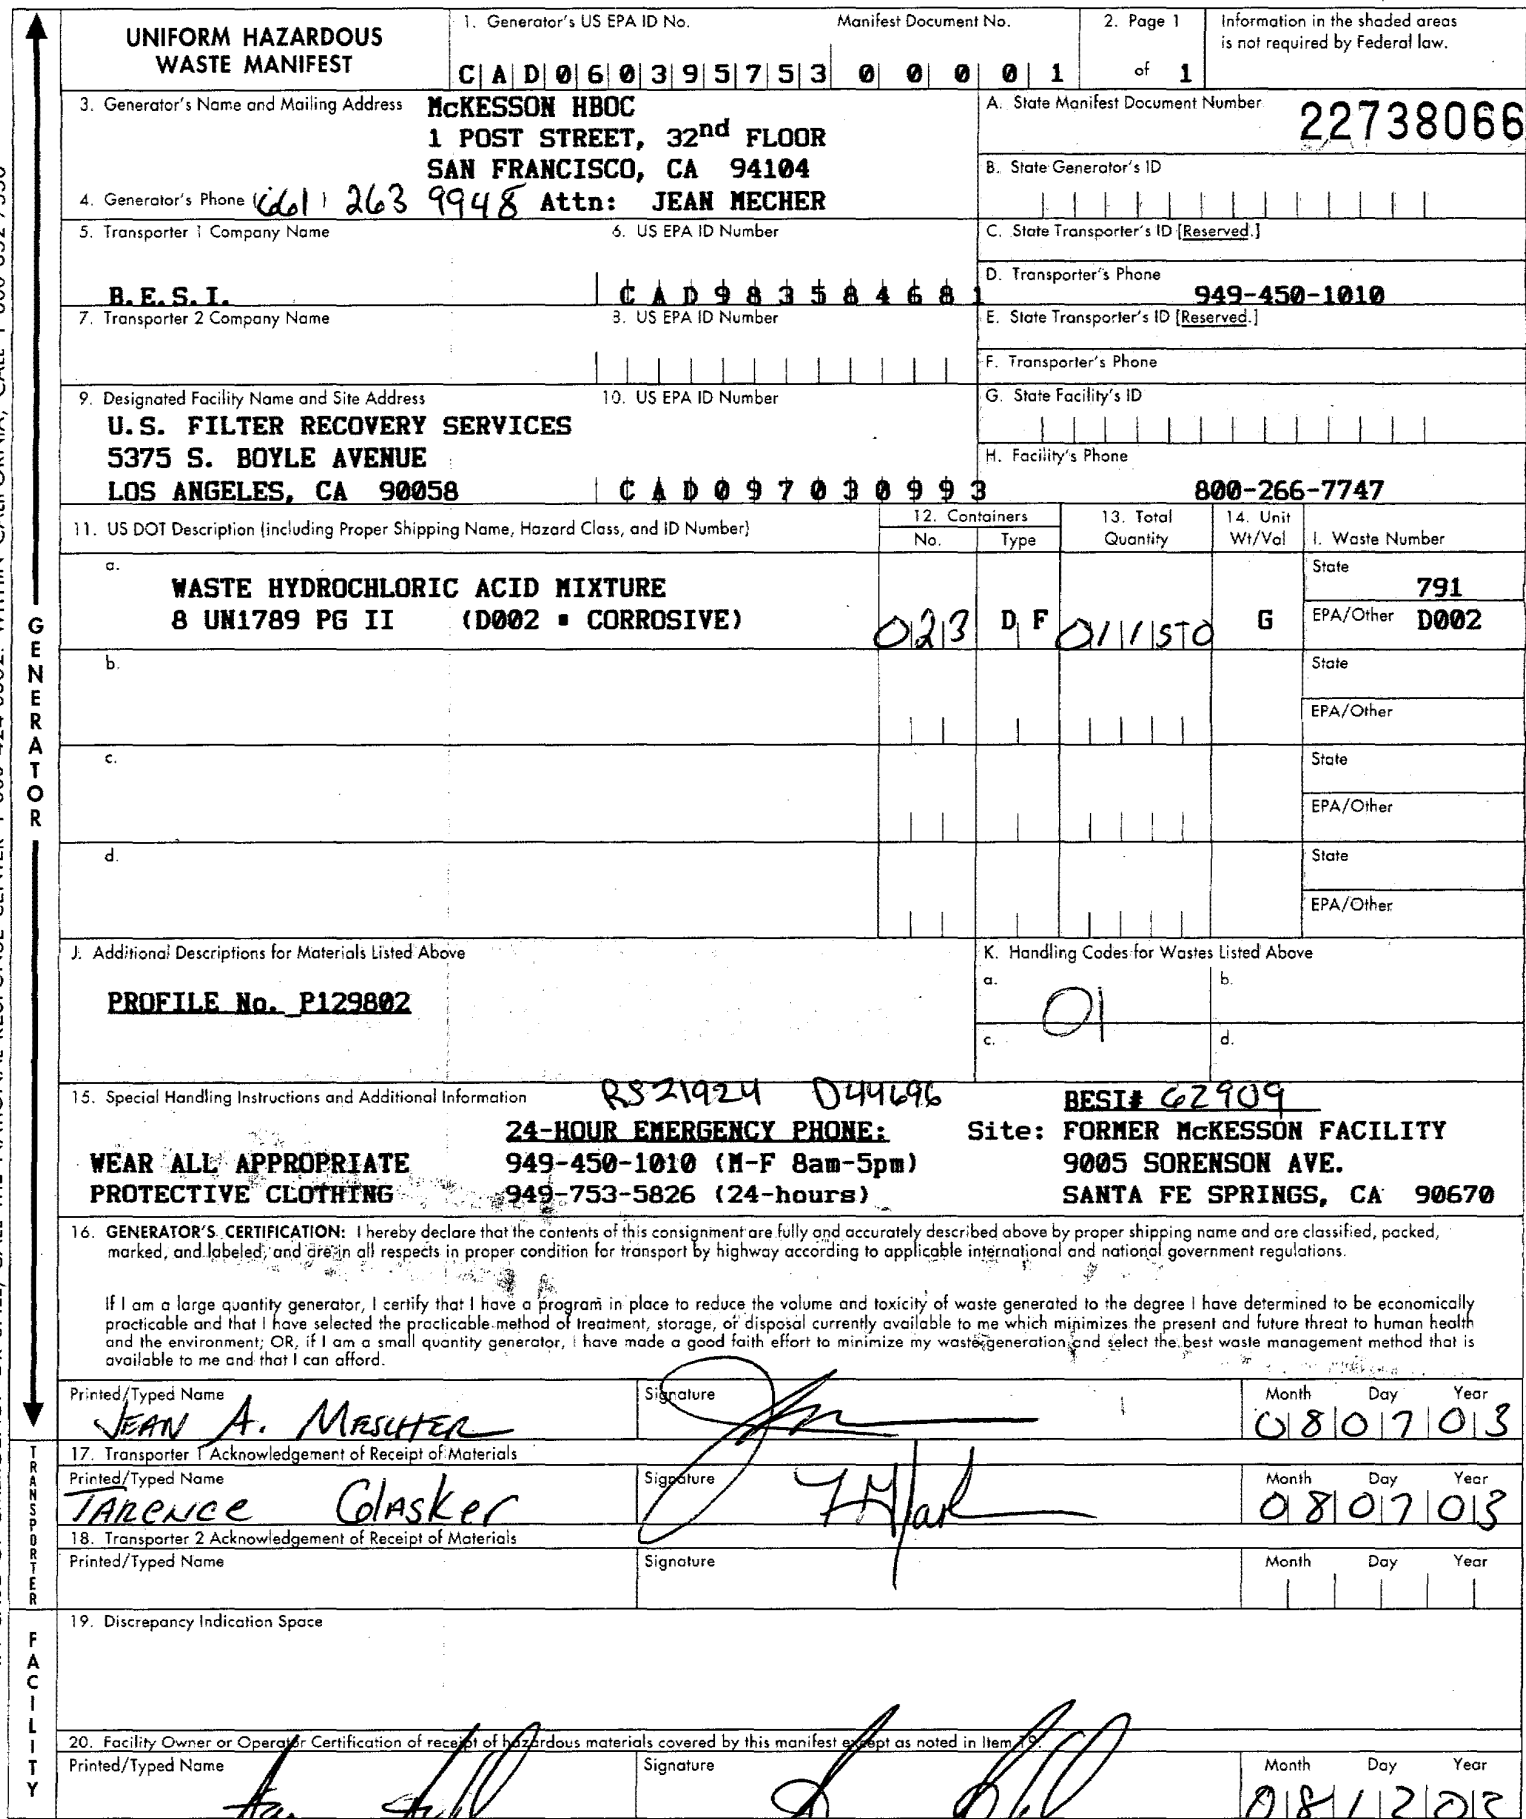 UNIFORM HAZARDOUS
WASTE MANIFEST
1. Generator's US EPA ID No.
CAD060395753
Manifest Document No.
00001
2. Page 1
of 1
Information in the shaded areas
is not required by Federal law.
3. Generator's Name and Mailing Address
McKESSON HBOC
1 POST STREET, 32nd FLOOR
SAN FRANCISCO, CA 94104
4. Generator's Phone (661) 263 9948 Attn: JEAN MECHER
A. State Manifest Document Number
22738066
B. State Generator's ID
5. Transporter 1 Company Name
B.E.S.I.
6. US EPA ID Number
CAD983584681
C. State Transporter's ID [Reserved.]
D. Transporter's Phone
949-450-1010
7. Transporter 2 Company Name
8. US EPA ID Number
E. State Transporter's ID [Reserved.]
F. Transporter's Phone
9. Designated Facility Name and Site Address
U.S. FILTER RECOVERY SERVICES
5375 S. BOYLE AVENUE
LOS ANGELES, CA 90058
10. US EPA ID Number
CAD097030993
G. State Facility's ID
H. Facility's Phone
800-266-7747
11. US DOT Description (including Proper Shipping Name, Hazard Class, and ID Number)
12. Containers
No. Type
13. Total
Quantity
14. Unit
Wt/Vol
I. Waste Number
a.
WASTE HYDROCHLORIC ACID MIXTURE
8 UN1789 PG II (D002 = CORROSIVE)
023 DF 01150 G
State
791
EPA/Other D002
b.
State
EPA/Other
c.
State
EPA/Other
d.
State
EPA/Other
J. Additional Descriptions for Materials Listed Above
PROFILE No. P129802
K. Handling Codes for Wastes Listed Above
a. 01
b.
c.
d.
15. Special Handling Instructions and Additional Information
RS21924 D44696
BESI# 62909
24-HOUR EMERGENCY PHONE:
Site: FORMER McKESSON FACILITY
WEAR ALL APPROPRIATE
949-450-1010 (M-F 8am-5pm)
9005 SORENSON AVE.
PROTECTIVE CLOTHING
949-753-5826 (24-hours)
SANTA FE SPRINGS, CA 90670
16. GENERATOR'S CERTIFICATION: I hereby declare that the contents of this consignment are fully and accurately described above by proper shipping name and are classified, packed,
marked, and labeled, and are in all respects in proper condition for transport by highway according to applicable international and national government regulations.
If I am a large quantity generator, I certify that I have a program in place to reduce the volume and toxicity of waste generated to the degree I have determined to be economically
practicable and that I have selected the practicable method of treatment, storage, or disposal currently available to me which minimizes the present and future threat to human health
and the environment; OR, if I am a small quantity generator, I have made a good faith effort to minimize my waste generation and select the best waste management method that is
available to me and that I can afford.
Printed/Typed Name
JEAN A. MESCHER
Signature
Month Day Year
08 07 03
17. Transporter 1 Acknowledgement of Receipt of Materials
Printed/Typed Name
TARENCE GlASKer
Signature
Month Day Year
08 07 03
18. Transporter 2 Acknowledgement of Receipt of Materials
Printed/Typed Name
Signature
Month Day Year
19. Discrepancy Indication Space
20. Facility Owner or Operator Certification of receipt of hazardous materials covered by this manifest except as noted in Item 19.
Printed/Typed Name
Signature
Month Day Year
GENERATOR
TRANSPORTER
FACILITY